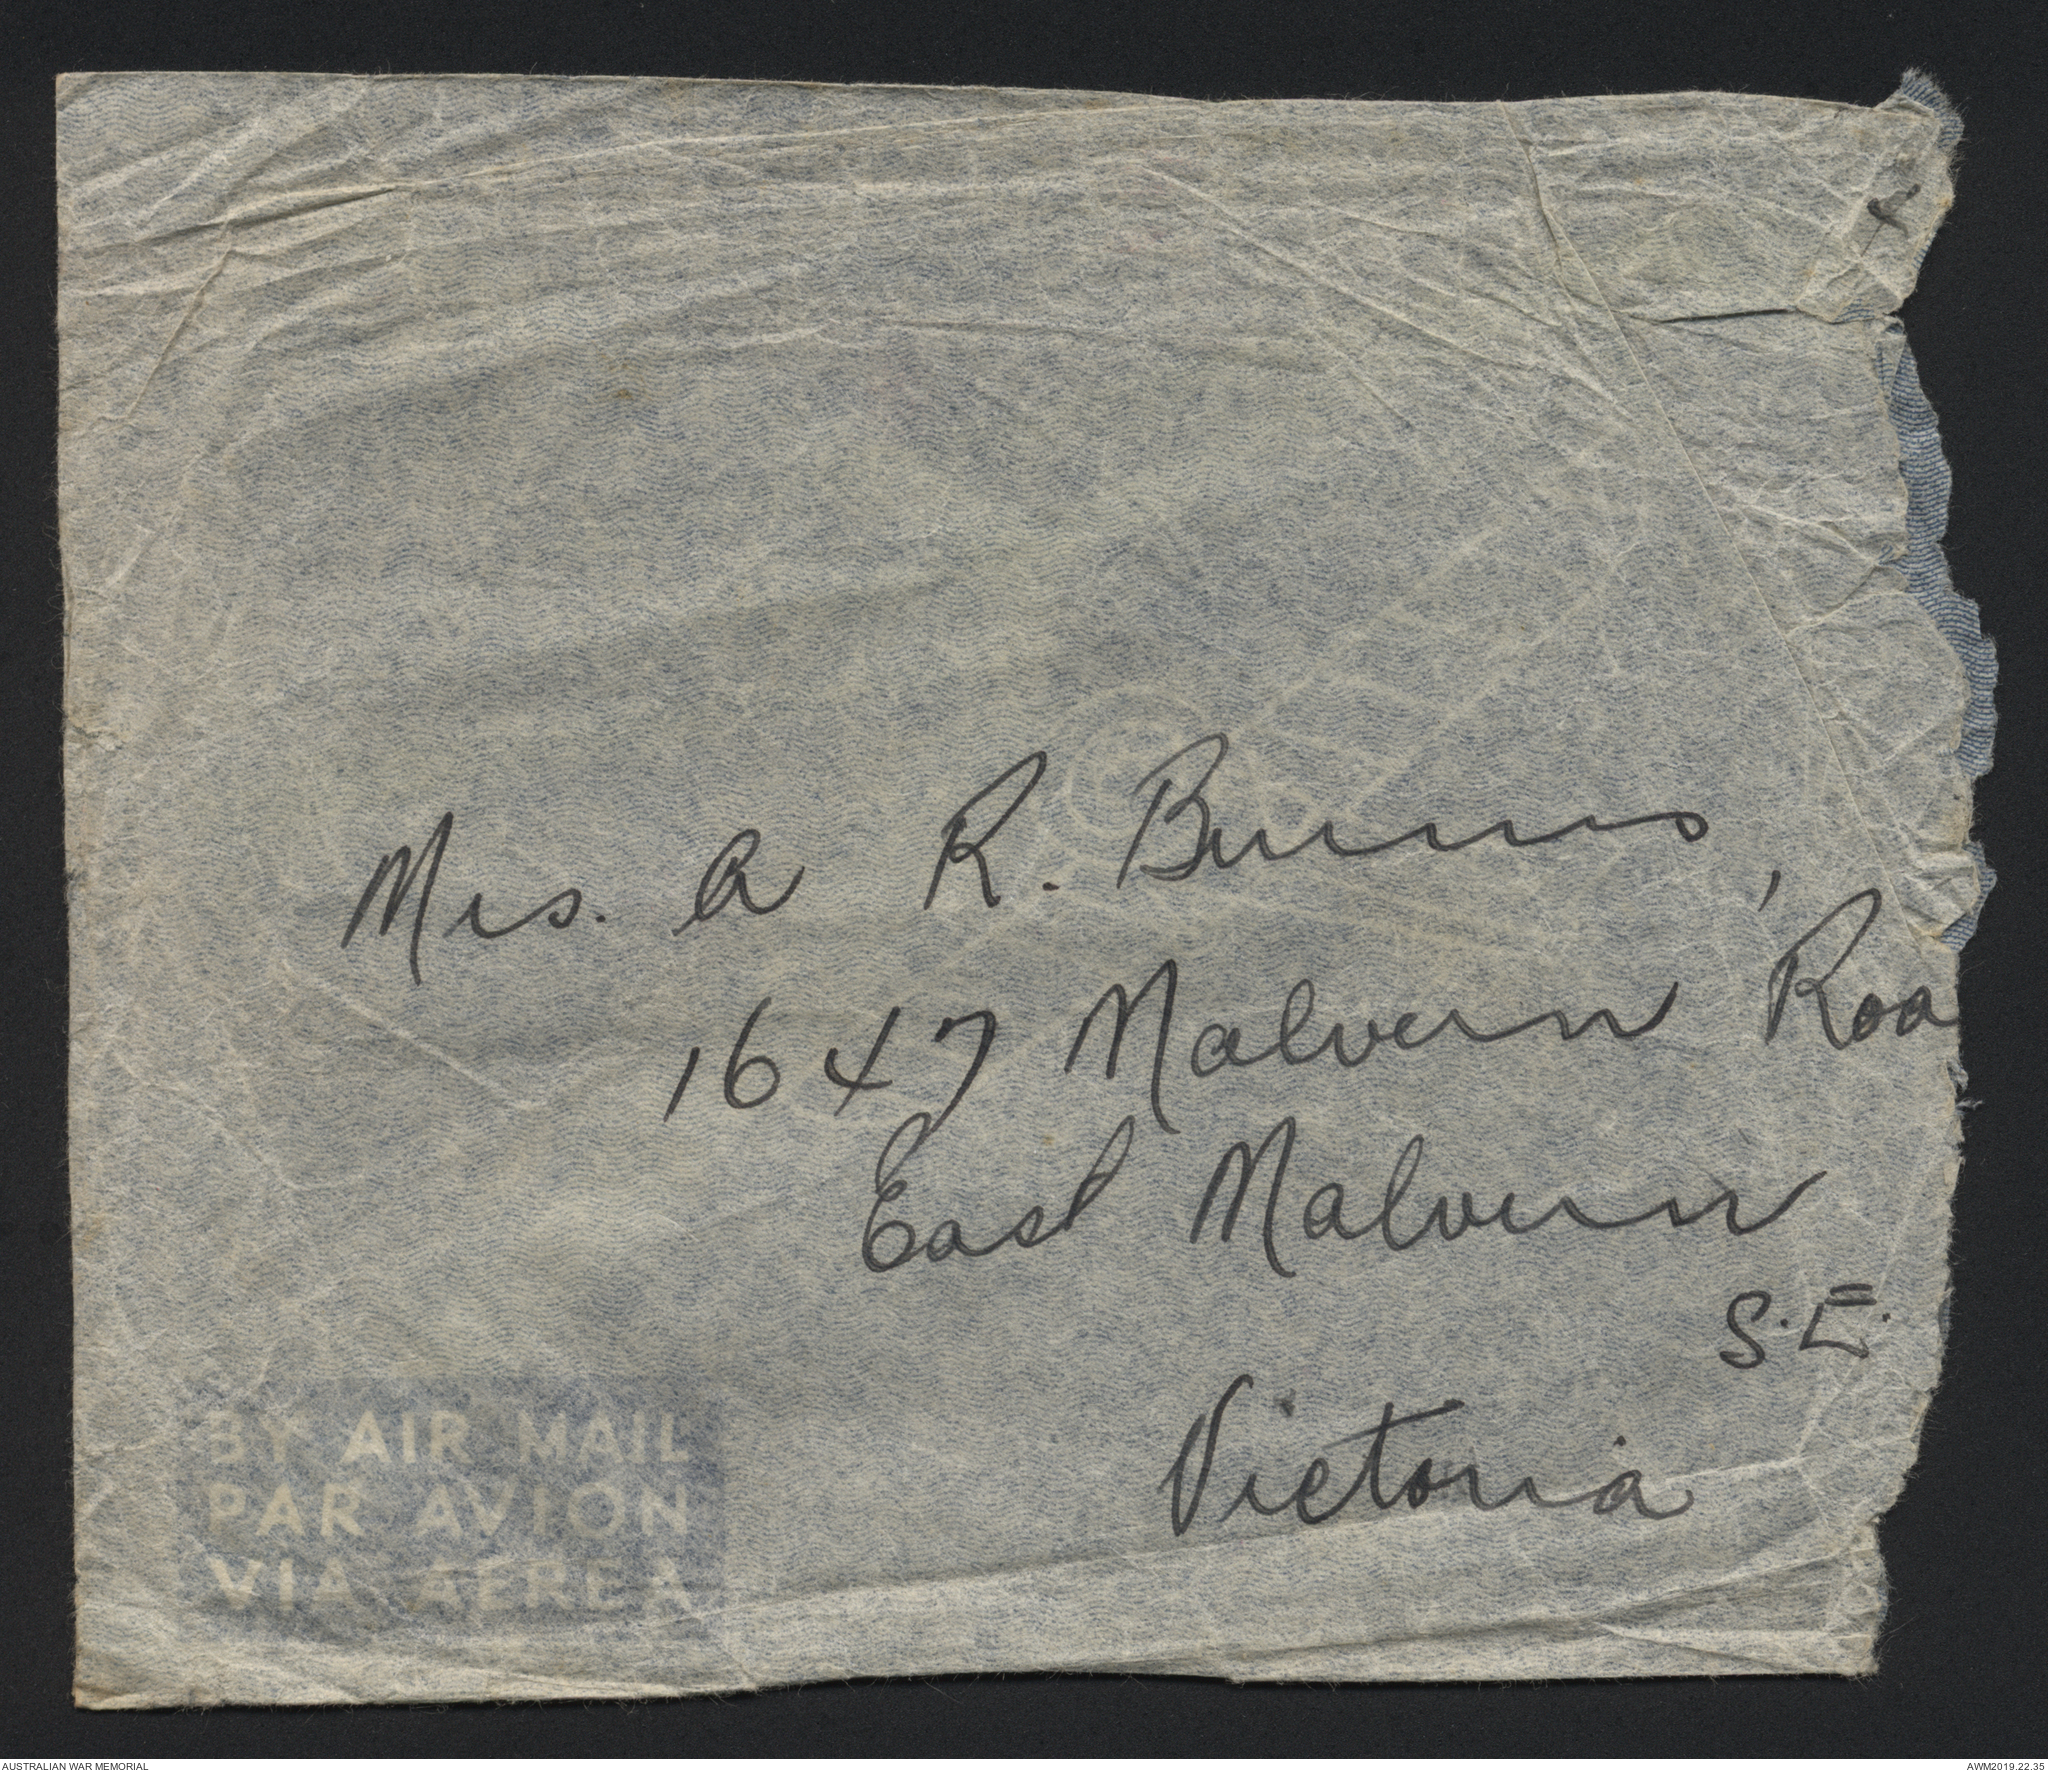 Mrs. A R. Burns,
1647 Malvern Roa
East Malvern
S.E.
Victoria
BY AIR MAIL
PAR AVION
VIA AEREA
AUSTRALIAN WAR MEMORIAL
AWM2019.22.35